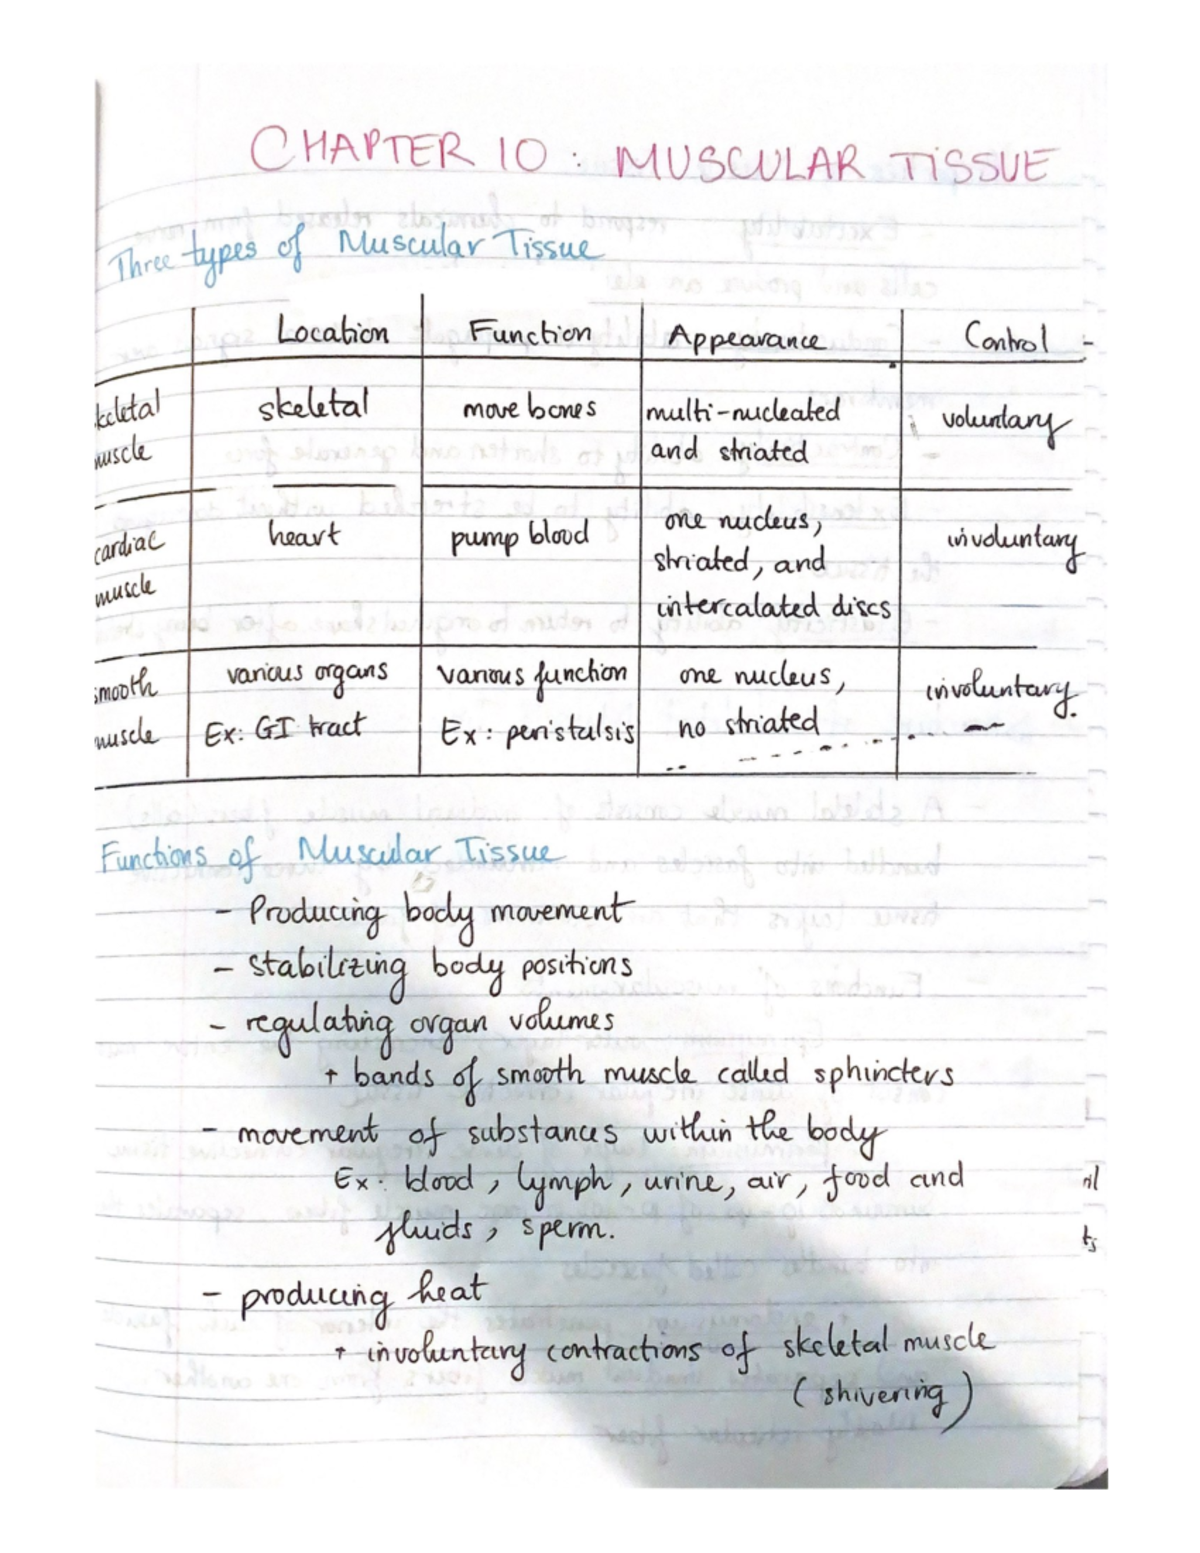 CHAPTER 10 : MUSCULAR TISSUE
Three types of Muscular Tissue
Location Function Appearance Control -
keletal skeletal move bones multi-nucleated voluntary
muscle and striated
cardiac heart pump blood one nucleus, involuntary
muscle striated, and
intercalated discs
smooth various organs various function one nucleus, involuntary.
muscle Ex: GI tract Ex: peristalsis no striated
Functions of Muscular Tissue
- Producing body movement
- stabilizing body positions
- regulating organ volumes
+ bands of smooth muscle called sphincters
- movement of substances within the body
Ex: blood, lymph, urine, air, food and
fluids, sperm.
ts
- producing heat
+ involuntary contractions of skeletal muscle
(shivering)